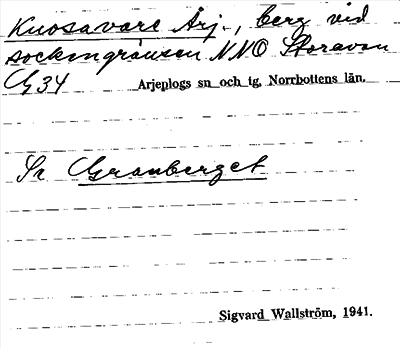 Kuosavare Arj., berg vid
sockengränsen NNO Storavan
G34 Arjeplogs sn och tg, Norrbottens län.
Sv Granberget
Sigvard Wallström, 1941.